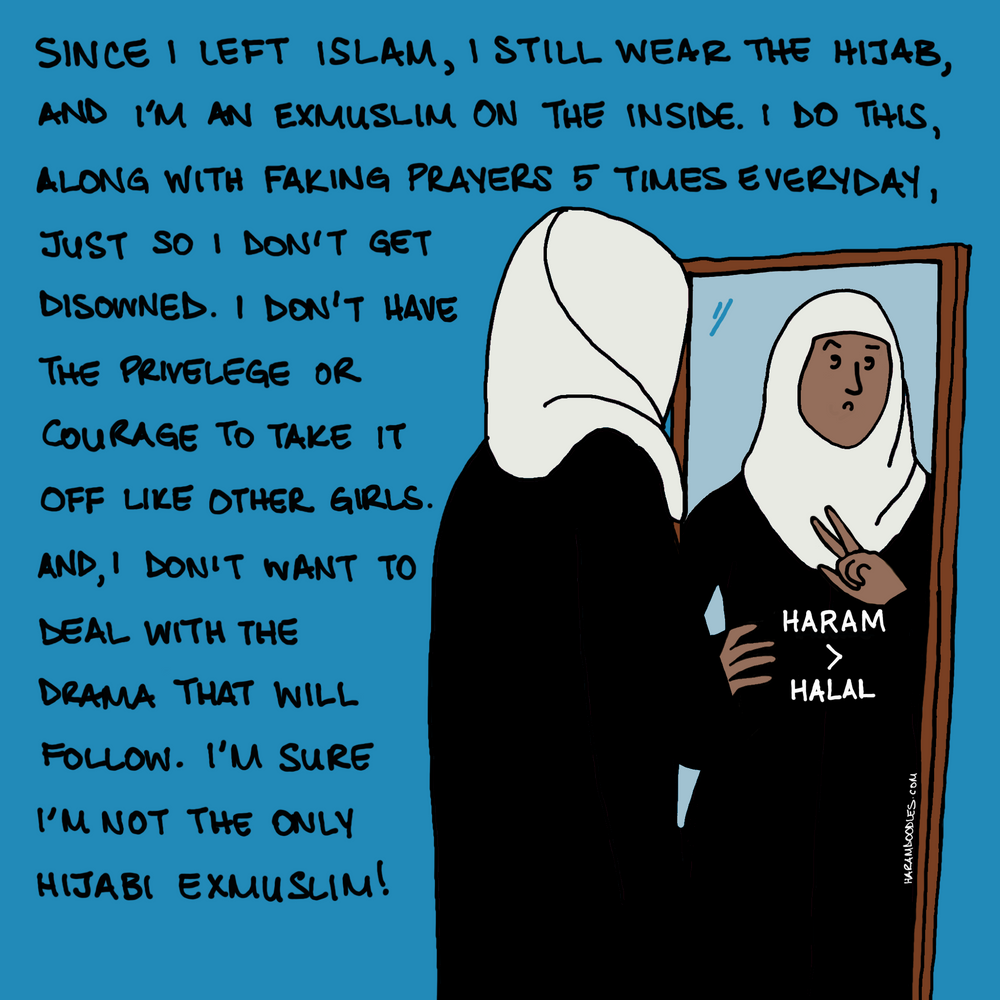 SINCE I LEFT ISLAM, I STILL WEAR THE HIJAB,
AND I'M AN EXMUSLIM ON THE INSIDE. I DO THIS,
ALONG WITH FAKING PRAYERS 5 TIMES EVERYDAY,
JUST SO I DON'T GET
DISOWNED. I DON'T HAVE
THE PRIVELEGE OR
COURAGE TO TAKE IT
OFF LIKE OTHER GIRLS.
AND, I DON'T WANT TO
DEAL WITH THE
DRAMA THAT WILL
FOLLOW. I'M SURE
I'M NOT THE ONLY
HIJABI EXMUSLIM!
HARAM
>
HALAL
HARAMDOODLES.COM